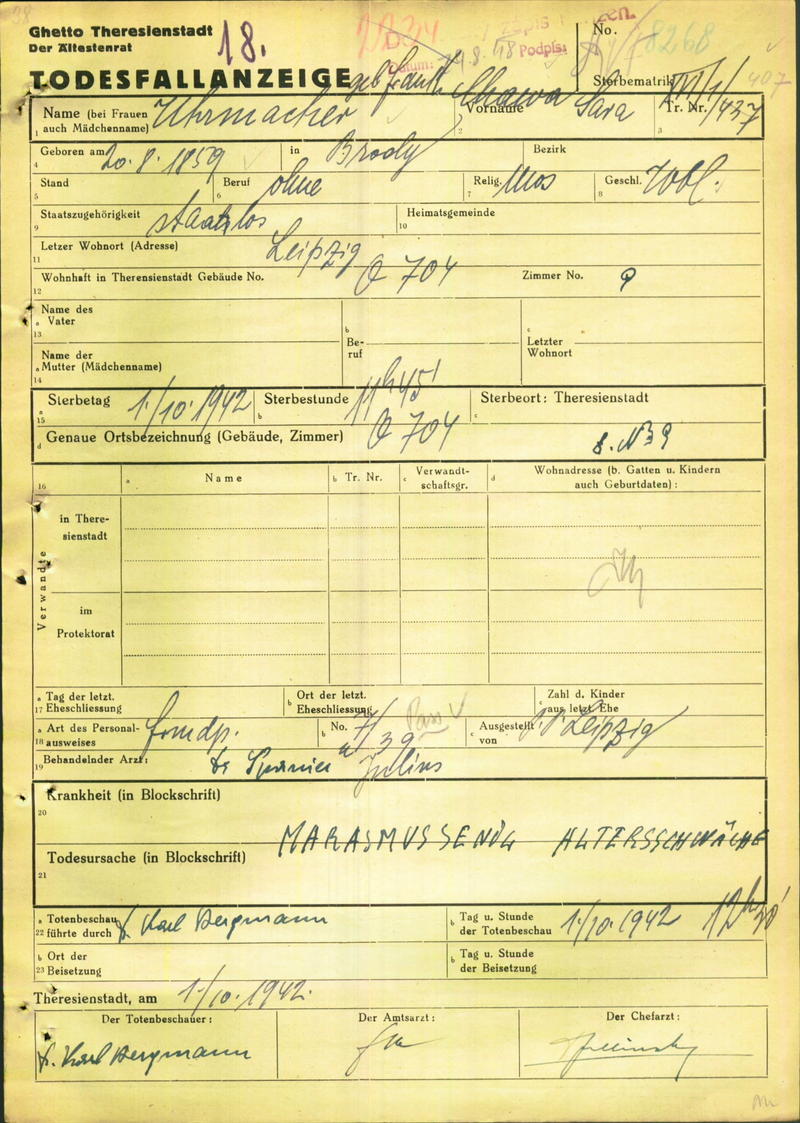 Ghetto Theresienstadt
Der Ältestenrat
18.
No.
8268
Podpis:
TODESFALLANZEIGE
Sterbematrik
407
Name (bei Frauen auch Mädchenname) Uhrmacher geb
1
Vorname Sara
2
Tr. Nr. VII/1/437
3
Geboren am 20.8.1859 in Brody Bezirk
4
Stand Beruf ohne Relig. Mos Geschl. Wbl.
5 6 7 8
Staatszugehörigkeit staatslos Heimatsgemeinde
9 10
Letzer Wohnort (Adresse) Leipzig
11
Wohnhaft in Therensienstadt Gebäude No. Q 704 Zimmer No. 9
12
Name des
a Vater
13
Name der
a Mutter (Mädchenname)
14
b
Be-
ruf
c
Letzter
Wohnort
a Sterbetag 1./10.1942 b Sterbestunde 11h 45' c Sterbeort: Theresienstadt
15
d Genaue Ortsbezeichnung (Gebäude, Zimmer) Q 704 9
16 a Name b Tr. Nr. c Verwandt-
schaftsgr. d Wohnadresse (b. Gatten u. Kindern
auch Geburtdaten) :
Verwandte
in There-
sienstadt
im
Protektorat
a Tag der letzt.
17 Eheschliessung
b Ort der letzt.
Eheschliessung
c Zahl d. Kinder
aus letzt. Ehe
a Art des Personal-
18 ausweises
b No. Pass
c Ausgestellt
von Leipzig
Behandelnder Arzt: Dr Spanier Julius
19
Krankheit (in Blockschrift)
20
MARASMUS SENIL ALTERSSCHWÄCHE
Todesursache (in Blockschrift)
21
a Totenbeschau
22 führte durch Dr. Karl Bergmann
b Tag u. Stunde
der Totenbeschau 1./10.1942
b Ort der
23 Beisetzung
b Tag u. Stunde
der Beisetzung
Theresienstadt, am 1./10.1942.
Der Totenbeschauer: Der Amtsarzt: Der Chefarzt:
Dr. Karl Bergmann